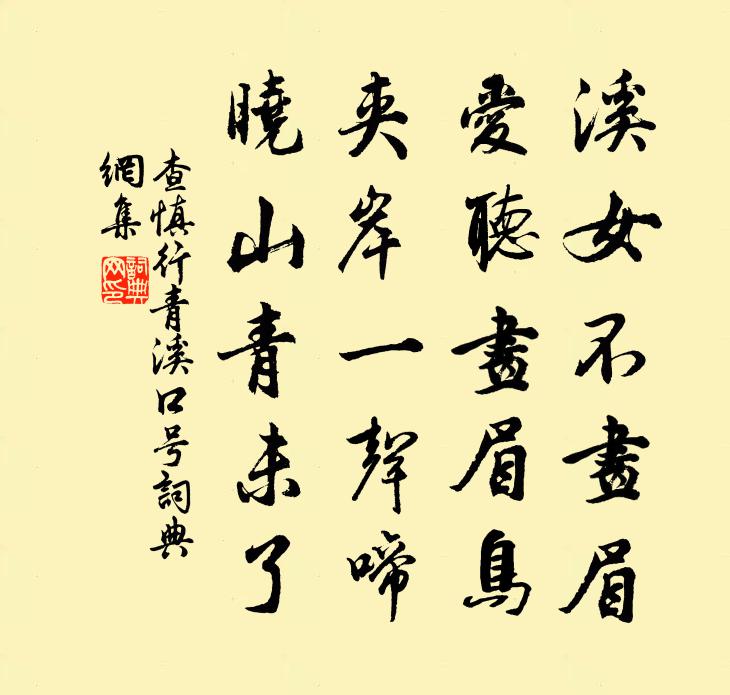 溪女不畫眉
愛聽畫眉鳥
夾岸一聲啼
曉山青未了
查慎行青溪口号詞典
網集
詞典
网印